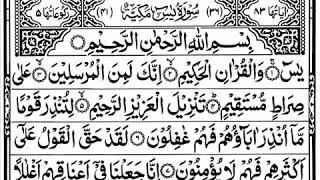 اٰیَاتُهَا ٨٣ (٣٦) سُوْرَةُ یٰسٓ مَكِّیَّةٌ (٤١) رُكُوْعَاتُهَا ٥
بِسْمِ اللّٰهِ الرَّحْمٰنِ الرَّحِیْمِ
یٰسٓ ۚ وَالْقُرْاٰنِ الْحَكِیْمِ ۙ اِنَّكَ لَمِنَ الْمُرْسَلِیْنَ ۙ عَلٰی
صِرَاطٍ مُّسْتَقِیْمٍ ؕ تَنْزِیْلَ الْعَزِیْزِ الرَّحِیْمِ ۙ لِتُنْذِرَ قَوْمًا
مَّاۤ اُنْذِرَ اٰبَآؤُهُمْ فَهُمْ غٰفِلُوْنَ ٦ لَقَدْ حَقَّ الْقَوْلُ عَلٰۤی
اَكْثَرِهِمْ فَهُمْ لَا یُؤْمِنُوْنَ ٧ اِنَّا جَعَلْنَا فِیْۤ اَعْنَاقِهِمْ اَغْلٰلًا